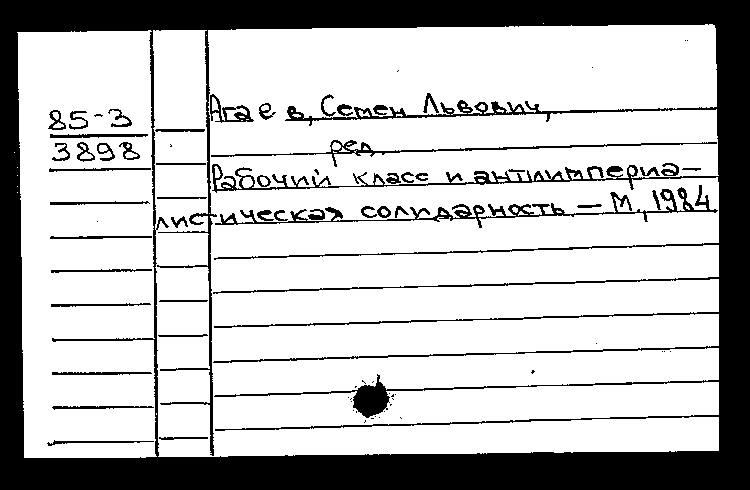 85-3
3898
Агаев, Семен Львович,
ред.
Рабочий класс и антиимпериа-
листическая солидарность - М., 1984